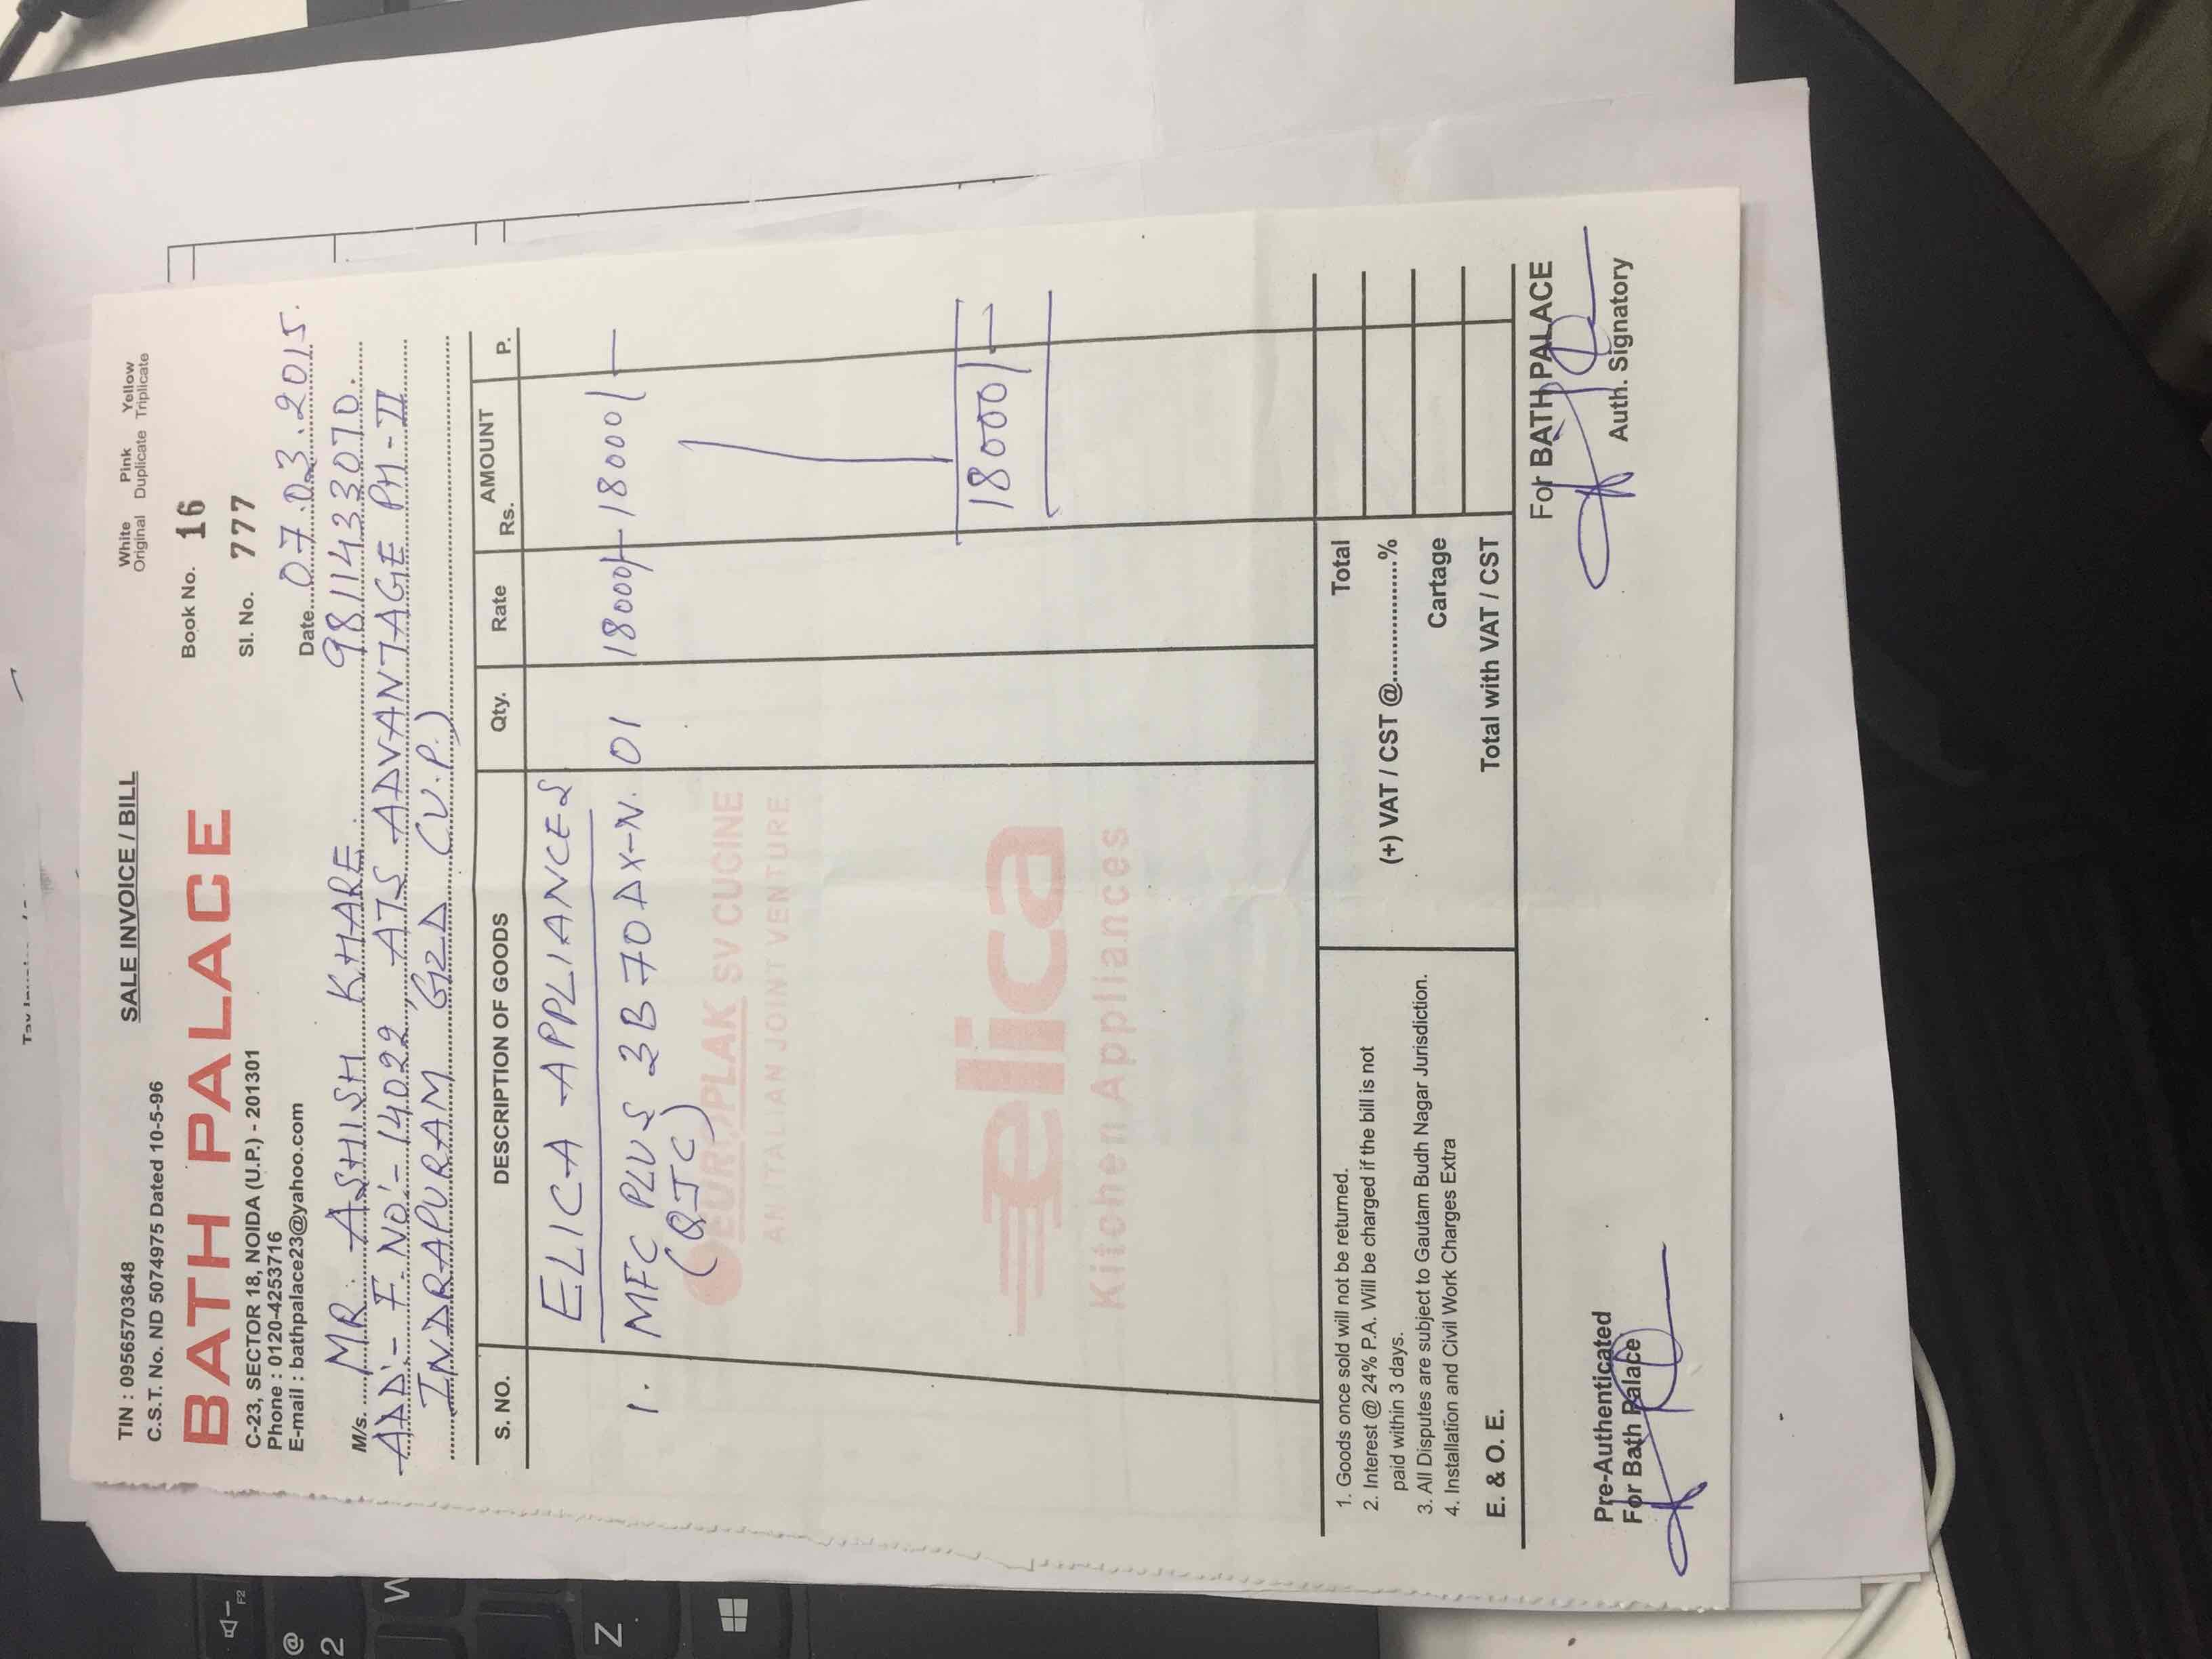 TIN : 09565703648
SALE INVOICE / BILL
White Pink Yellow
Original Duplicate Triplicate
C.S.T. No. ND 5074975 Dated 10-5-96
BATH PALACE
Book No. 16
C-23, SECTOR 18, NOIDA (U.P.) - 201301
Sl. No. 777
Phone : 0120-4253716
E-mail : bathpalace23@yahoo.com
Date 07.03.2015.
M/s. MR. ASHISH KHARE. 9811433070.
ADD:- F. NO:- 14022, ATS ADVANTAGE PH-II
INDRAPURAM GZD (U.P.)
S. NO. DESCRIPTION OF GOODS Qty. Rate AMOUNT
Rs. P.
ELICA APPLIANCES
1. MFC PLUS 3B 70 DX-N. 01 18000/- 18000/-
(QJC)
EUROPLAK SV CUCINE
AN ITALIAN JOINT VENTURE
18000/-
elica
Kitchen Appliances
1. Goods once sold will not be returned.
2. Interest @ 24% P.A. Will be charged if the bill is not
paid within 3 days.
3. All Disputes are subject to Gautam Budh Nagar Jurisdiction.
4. Installation and Civil Work Charges Extra
E. & O. E.
Total
(+) VAT / CST @...................%
Cartage
Total with VAT / CST
For BATH PALACE
Auth. Signatory
Pre-Authenticated
For Bath Palace
F2
@
2
W
Z